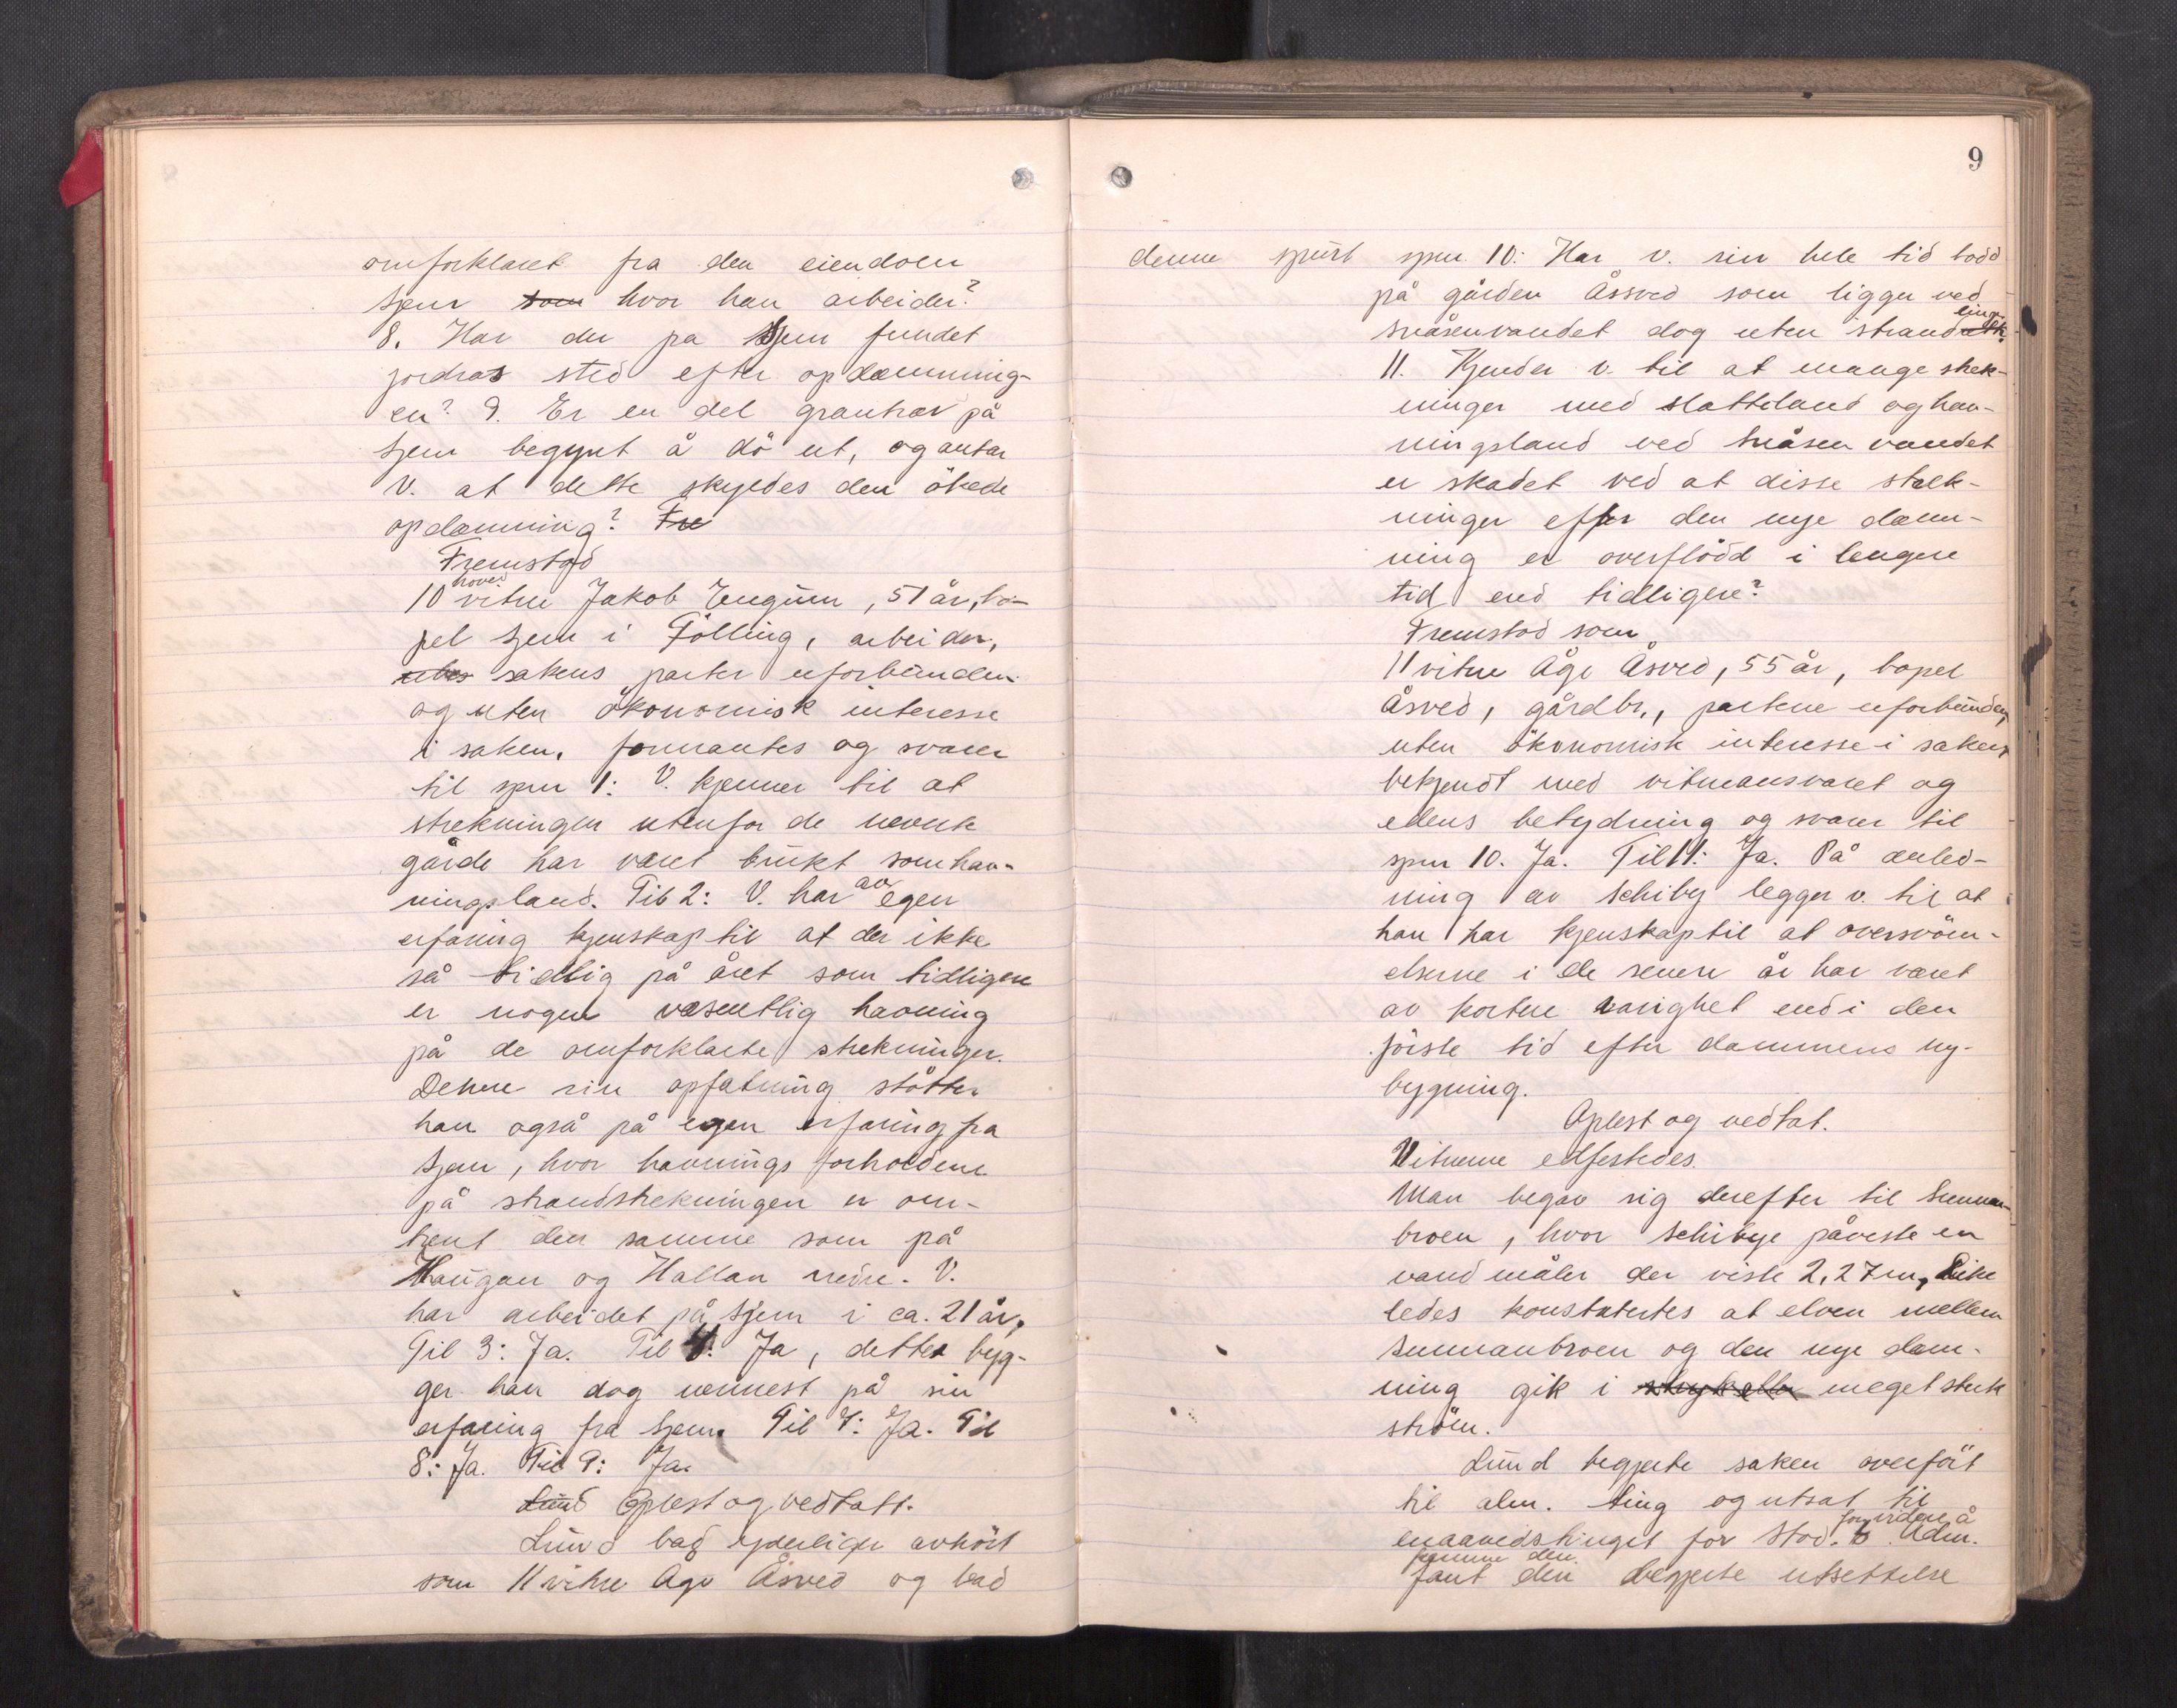 omforklaret fra den eiendom
Sjem som hvor han arbeider?
8. Har der på Sjem fundet
jordras sted efter opdæmning-
en? 9. Er en del grantrær på
Sjem begynt å dö ut, og antar
V. at dette skyldes den ökede
opdæmning? Fre
Fremstod
10 hoved vitne Jakob Engum, 51 år, bo-
pel Sjem i Fölling, arbeider,
sakens parter uforbunden
og uten ökonomisk interesse
i saken. formantes og svarer
til spm 1: V. kjenner til at
strekningen utenfor de nevnte
gårde har været brukt som hav-
ningsland. Til 2: V. har av egen
erfaring kjenskap til at der ikke
så tidlig på året som tidligere
er nogen væsentlig havning
på de omforklarte strekninger.
Denne sin opfatning stötter
han også på egen erfaring fra
Sjem, hvor havnings forholdene
på strandstrekningen er om-
trent den samme som på
Haugan og Hallan nedre. V.
har arbeidet på Sjem i ca. 21 år.
Til 3: Ja. Til 4: Ja, dette byg-
ger han dog nermest på sin
erfaring fra Sjem. Til 7: Ja. Til
8: Ja. Til 9: Ja.
Lund Oplest og vedtatt.
Lund bad yderligere avhört
som 11 vitne Åge Åsved og bad
9
denne spurt spm 10: Har v. sin hele tid bodd
på gården Åssved som ligger ved
Snåsenvandet dog uten strandling.
11. Kjender v. til at mange strek-
ninger med slåtteland og hav-
ningsland ved Snåsen vandet
er skadet ved at disse strek-
ninger efter den nye dæm-
ning er overflödd i lengere
tid end tidligere?
Fremstod som
11 vitne Åge Åsved, 55 år, bopel
Åsved, gårdbr., partene uforbunden,
uten ökonomisk interesse i saken,
bekjendt med vitneansvaret og
edens betydning og svarer til
spm 10. Ja. Til 11: Ja. På anled-
ning av Schiby legger v. til at
han har kjenskap til at oversvöm-
elserne i de senere år har været
av kortere varighet end i den
förste tid efter dammens ny-
bygning.
Oplest og vedtat.
Vitnerne edfestedes.
Man begav sig derefter til Sunnan-
broen, hvor Schibye påviste en
vandmåler der viste 2,27 m, Like
ledes konstatertes at elven mellem
Sunnanbroen og den nye dæm-
ning gik i meget sterk
ström.
Lund begjerte saken overfört
til alm. ting og utsat til
maanedstinget for Stod. for videre å Adm.
fremme den
fant den begjerte utsettelse